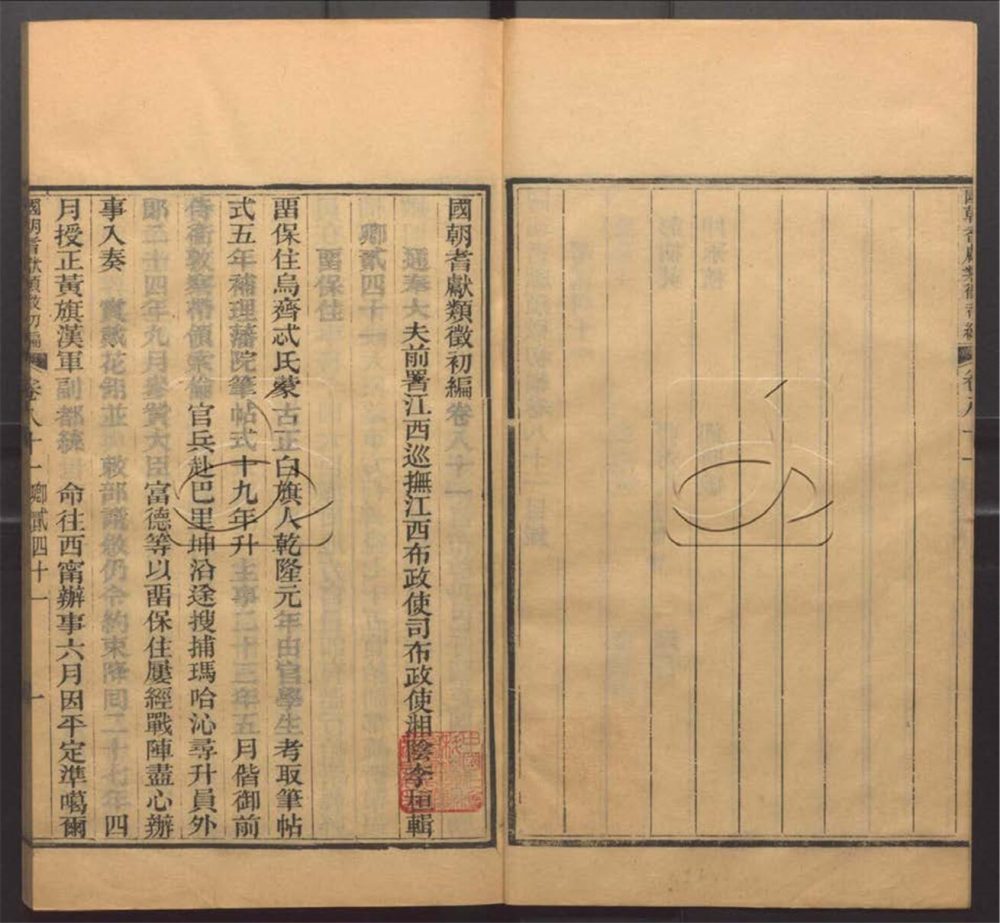 國朝耆獻類徵初編卷八十一
通奉大夫前署江西巡撫江西布政使司布政使湘陰李桓輯
卿貳四十一
畱保住
畱保住烏齊忒氏蒙古正白旗人乾隆元年由官學生考取筆帖
式五年補理藩院筆帖式十九年升主事二十三年五月偕御前
侍衛敦察帶領索倫官兵赴巴里坤沿途搜捕瑪哈沁尋升員外
郎二十四年九月參贊大臣富德等以畱保住屢經戰陣盡心辦
事入奏 賞戴花翎並 敕部議敘仍令約束降回二十七年四
月授正黃旗漢軍副都統 命往西甯辦事六月因平定準噶爾
國朝耆獻類徵初編 卷八十一 卿貳四十一 一